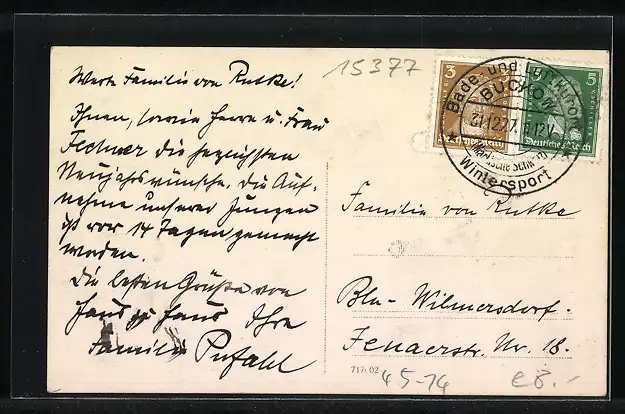 Werte Familie von Rutke!
Ihnen, sowie Herrn u. Frau
Fechner die herzlichsten
Neujahrswünsche. Die Auf-
nahme unserer Jungen
ist vor 14 Tagen gemacht
worden.
Die besten Grüße von
Haus zu Haus Ihre
Familie Pufahl
15377
3
5
Deutsches Reich
Deutsches Reich
Bade- und Luftkurort
BUCKOW
31.12.27. 11-12V
Märkische Schweiz
Wintersport
Familie von Rutke
Bln-Wilmersdorf.
Jenaerstr. Nr. 18.
7176 02
45-14
€8.-